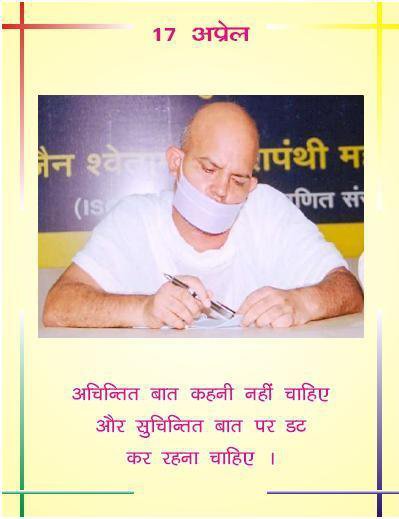 17 अप्रेल
जैन श्वेता
पंथी
(IS
अचिन्तित बात कहनी नहीं चाहिए
और सुचिन्तित बात पर डट
कर रहना चाहिए ।